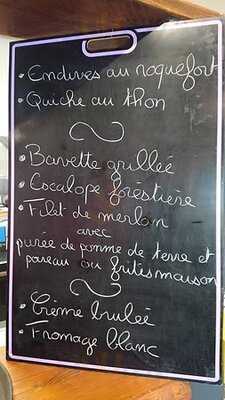 • Endives au roquefort
• Quiche au thon
• Bavette grillée
• Escalope forestière
• Filet de merlan
avec
purée de pomme de terre et
poireau ou frites maison
• Crème brulée
• Fromage blanc